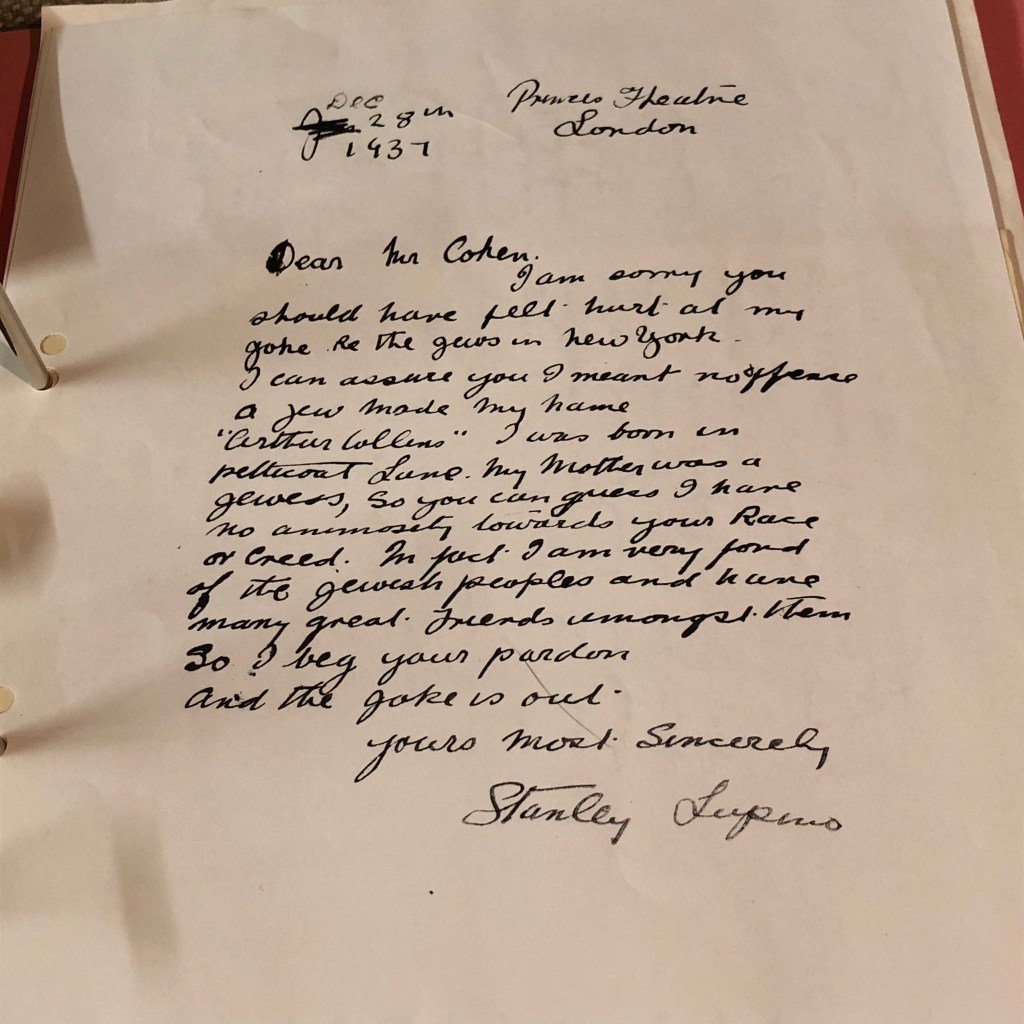 Dec
28th
1937
Princes Theatre
London
Dear Mr Cohen.
I am sorry you
should have felt hurt at my
joke Re the jews in New York.
I can assure you I meant no offense
a jew made my name
"Arthur Collins" I was born in
petticoat Lane. My Mother was a
jewess, So you can guess I have
no animosity towards your Race
or Creed. In fact I am very fond
of the jewish peoples and have
many great friends amongst them
So I beg your pardon
And the joke is out.
yours most Sincerely
Stanley Lupino